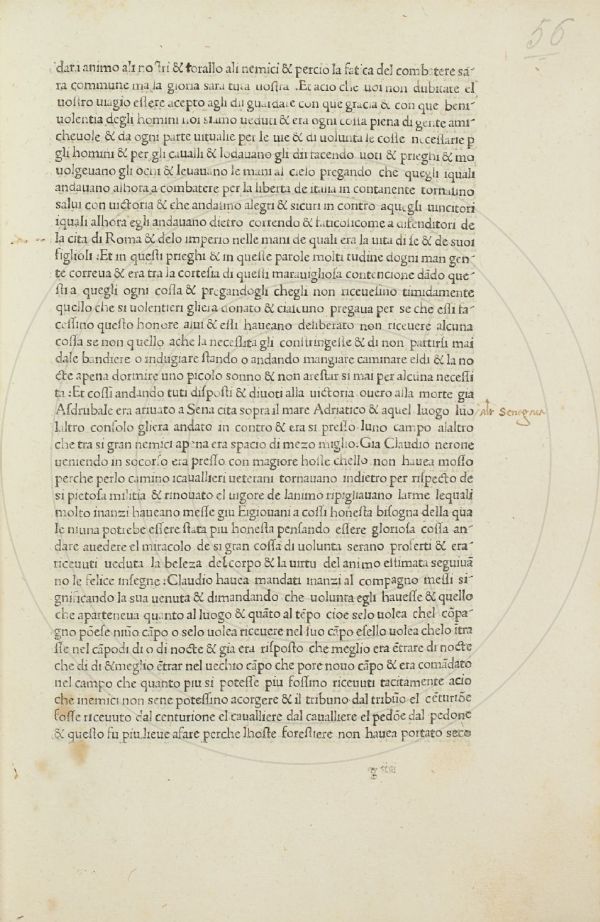 56
dara animo ali nostri & torallo ali nemici & percio la fatica del combatere sa
ra commune ma la gloria sara tuta uostra :Et acio che uoi non dubitate el
uostro uiagio essere acepto agli dii guardate con que gracia & con que beni
uolentia degli homini noi siamo ueduti & era ogni cossa piena di gente ami
cheuole & da ogni parte uitualie per le uie & di uolunta le cosse necessarie p
gli homini & per gli caualli & lodauano gli dii facendo uoti & prieghi & mo
uolgeuano gli ochi & leuauano le mani al cielo pregando che quegli iquali
andauano alhora a combatere per la liberta de italia in contanente tornasino
salui con uictoria & che andasino alegri & sicuri in contro aquegli uincitori
iquali alhora egli andauano dietro correndo & faticosicome a difenditori de
la cita di Roma & delo imperio nelle mani de quali era la uita di se & de suoi
figlioli :Et in questi prieghi & in queste parole molti tudine dogni man gen
te correua & era tra la cortesia di questi marauigliosa contencione dãdo que
sti a quegli ogni cossa & pregandogli chegli non riceuesino timidamente
quello che si uolentieri gliera donato & ciascuno pregaua per se che essi fa
cessino questo honore aiui & essi haueano deliberato non riceuere alcuna
cossa se non quello ache la necessita gli constringesse & di non partirsi mai
dale bandiere o indugiare stando o andando mangiare caminare eldi & la no
cte apena dormire uno picolo sonno & non arestar si mai per alcuna necessi
ta :Et cossi andando tuti disposti & diuoti alla uictoria ouero alla morte gia
Asdrubale era ariuato a Sena cita sopra il mare Adriatico & aquel luogo luo
laltro consolo gliera andato in contro & era si presso luno campo alaltro
che tra si gran nemici apena era spacio di mezo miglio :Gia Claudio nerone
ueniendo in socorso era presso con magiore hoste chello non hauea mosso
perche perlo camino icauallieri ueterani tornauano indietro per rispecto de
si pietosa militia & rinouato el uigore de lanimo ripigliauano larme lequali
molto inanzi haueano messe giu Eigiouani a cossi honesta bisogna della qua
le niuna potrebe essere stata piu honesta pensando essere gloriosa cossa an
dare auedere el miracolo de si gran cossa di uolunta serano proferti & era
riceuuti ueduta la beleza del corpo & la uirtu del animo estimata seguiuã
no le felice insegne :Claudio hauea mandati inanzi al compagno messi si
gnificando la sua uenuta & dimandando che uolunta egli hauesse & quello
che aparteneua quanto al luogo & quãto al tẽpo cioe selo uolea chel cõpa
gno põese niuo cãpo o selo uolea riceuere nel suo cãpo esello uolea chelo ĩtra
sse nel cãpodi di o di nocte & gia era risposto che meglio era ẽtrare di nocte
che di di &meglio ẽtrar nel uechio cãpo che pore nouo cãpo & era comãdato
nel campo che quanto piu si potesse piu fossino riceuuti tacitamente acio
che inemici non sene potessino acorgere & il tribuno dal tribũo el cẽturiõe
fosse riceuuto dal centurione el caualliere dal caualliere el pedõe dal pedone
& questo fu piu lieue afare perche lhoste forestiere non hauea portato seco